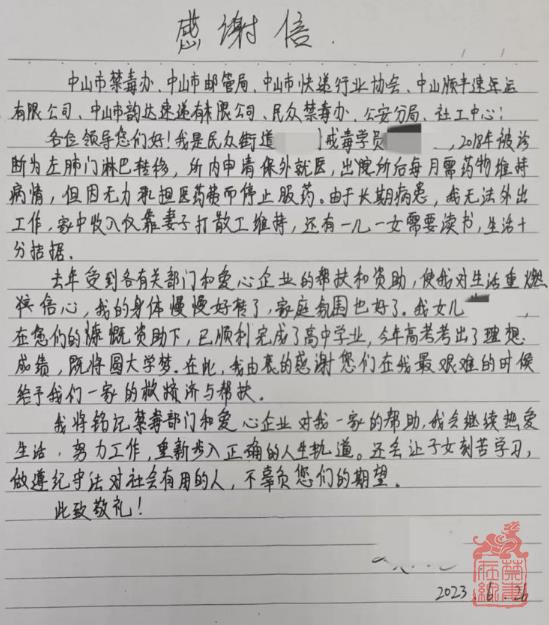 感谢信.
中山市禁毒办、中山市邮管局、中山市快递行业协会、中山顺丰速运
有限公司、中山市韵达速递有限公司、民众禁毒办、公安分局、社工中心:
各位领导您们好!我是民众街道 戒毒学员 ,2018年被诊
断为左肺门淋巴转移,所内申请保外就医,出院所后每月需药物维持
病情,但因无力承担医药费而停止服药。由于长期病患,我无法外出
工作,家中收入仅靠妻子打散工维持,还有一儿一女需要读书,生活十
分拮据。
去年受到各有关部门和爱心企业的帮扶和资助,使我对生活重燃
信心,我的身体慢慢好转了,家庭氛围也好了。我女儿 ,
在您们的慷慨资助下,已顺利完成了高中学业,今年高考考出了理想
成绩,既将圆大学梦。在此,我由衷的感谢您们在我最艰难的时候
给予我们一家的救济与帮扶。
我将铭记禁毒部门和爱心企业对我一家的帮助,我会继续热爱
生活,努力工作,重新步入正确的人生轨道。还会让子女刻苦学习,
做遵纪守法对社会有用的人,不辜负您们的期望。
此致敬礼!
2023.6.26